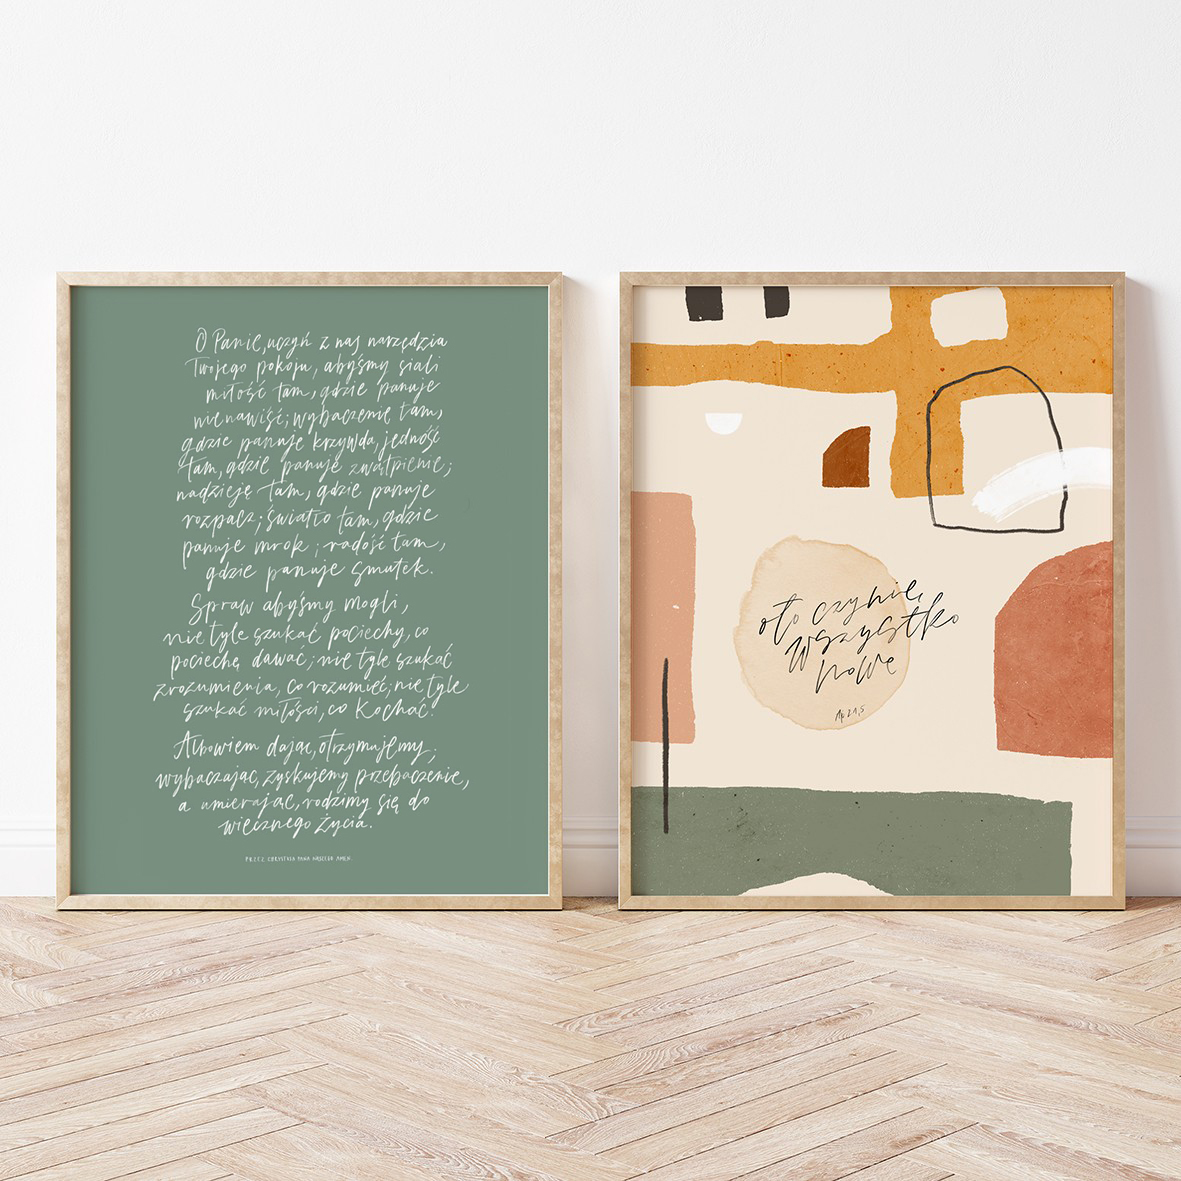 O Panie, uczyń z nas narzędzia
Twojego pokoju, abyśmy siali
miłość tam, gdzie panuje
nienawiść; wybaczenie tam,
gdzie panuje krzywda, jedność
tam, gdzie panuje zwątpienie;
nadzieję tam, gdzie panuje
rozpacz; światło tam, gdzie
panuje mrok; radość tam,
gdzie panuje smutek.
Spraw abyśmy mogli,
nie tyle szukać pociechy, co
pociechę dawać; nie tyle szukać
zrozumienia, co rozumieć; nie tyle
szukać miłości, co kochać.
Albowiem dając, otrzymujemy;
wybaczając, zyskujemy przebaczenie,
a umierając, rodzimy się do
wiecznego życia.
PRZEZ CHRYSTUSA PANA NASZEGO AMEN.
oto czynię
wszystko
nowe
Ap. 21,5